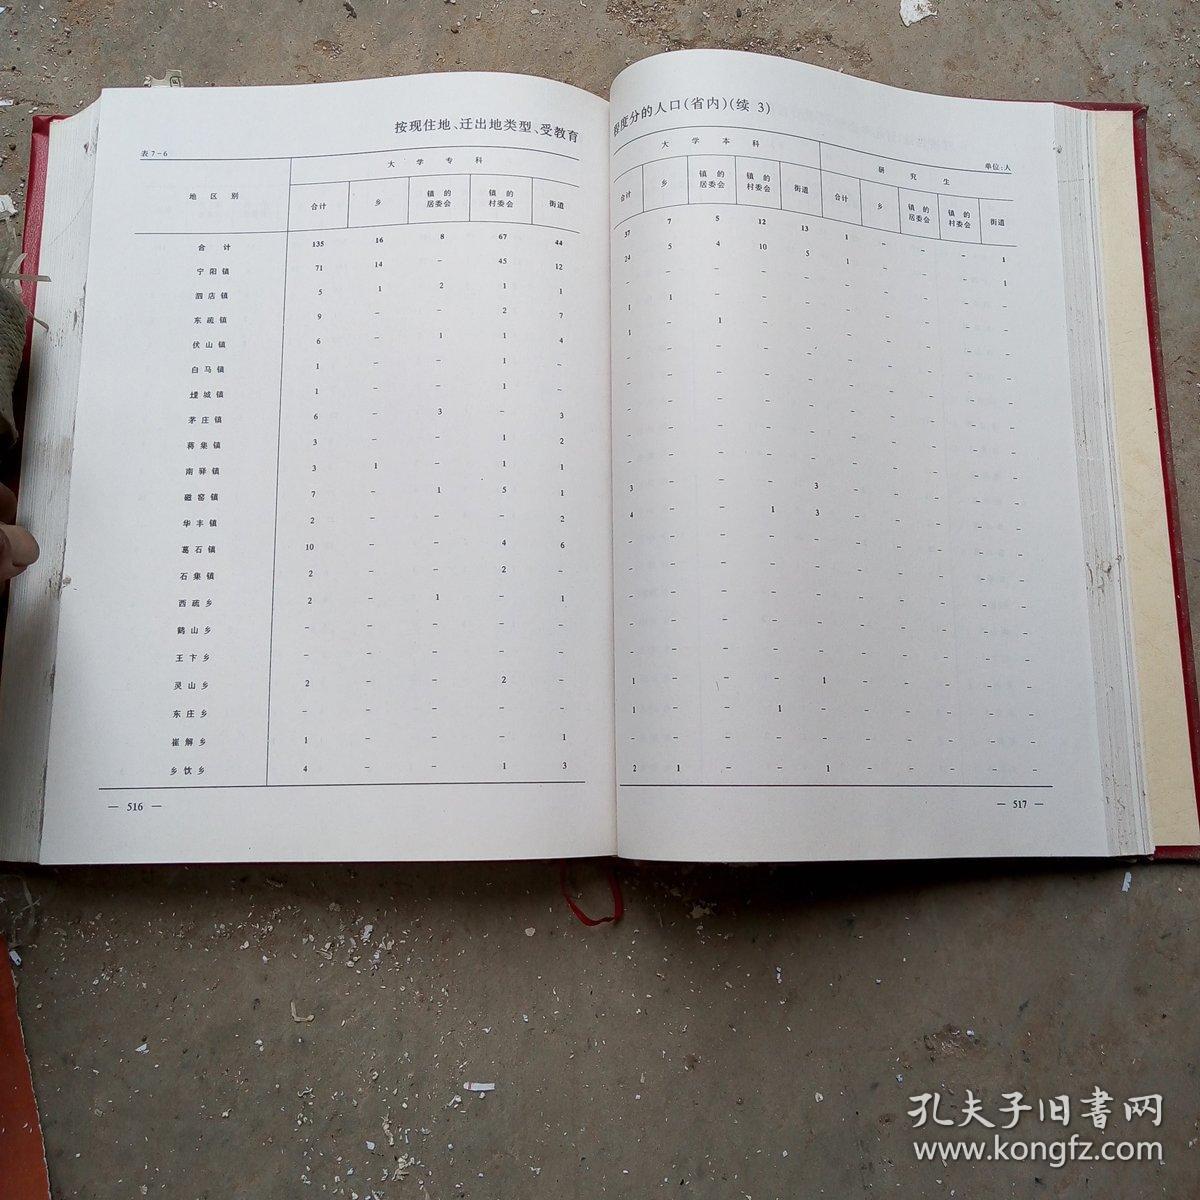 按现住地、迁出地类型、受教育程度分的人口(省内)(续 3)
表 7-6
单位:人
地 区 别
大 学 专 科
大 学 本 科
研 究 生
合计 乡 镇 的居委会 镇 的村委会 街道 合计 乡 镇 的居委会 镇 的村委会 街道 合计 乡 镇 的居委会 镇 的村委会 街道
合 计 135 16 8 67 44 37 7 5 12 13 1 – – – 1
宁 阳 镇 71 14 – 45 12 24 5 4 10 5 1 – – – 1
泗 店 镇 5 1 2 1 1 – – – – – – – – – –
东 疏 镇 9 – – 2 7 1 1 – – – – – – – –
伏 山 镇 6 – 1 1 4 1 – 1 – – – – – – –
白 马 镇 1 – – 1 – – – – – – – – – – –
堽 城 镇 1 – – 1 – – – – – – – – – – –
茅 庄 镇 6 – 3 – 3 – – – – – – – – – –
蒋 集 镇 3 – – 1 2 – – – – – – – – – –
南 驿 镇 3 1 – 1 1 – – – – – – – – – –
磁 窑 镇 7 – 1 5 1 3 – – – 3 – – – – –
华 丰 镇 2 – – – 2 4 – – 1 3 – – – – –
葛 石 镇 10 – – 4 6 – – – – – – – – – –
石 集 镇 2 – – 2 – – – – – – – – – – –
西 疏 乡 2 – 1 – 1 – – – – – – – – – –
鹤 山 乡 – – – – – – – – – – – – – – –
王 卞 乡 – – – – – – – – – – – – – – –
灵 山 乡 2 – – 2 – 1 – – – 1 – – – – –
东 庄 乡 – – – – – 1 – – 1 – – – – – –
崔 解 乡 1 – – – 1 – – – – – – – – – –
乡 饮 乡 4 – – 1 3 2 1 – – 1 – – – – –
— 516 —
— 517 —
孔夫子旧書网
www.kongfz.com